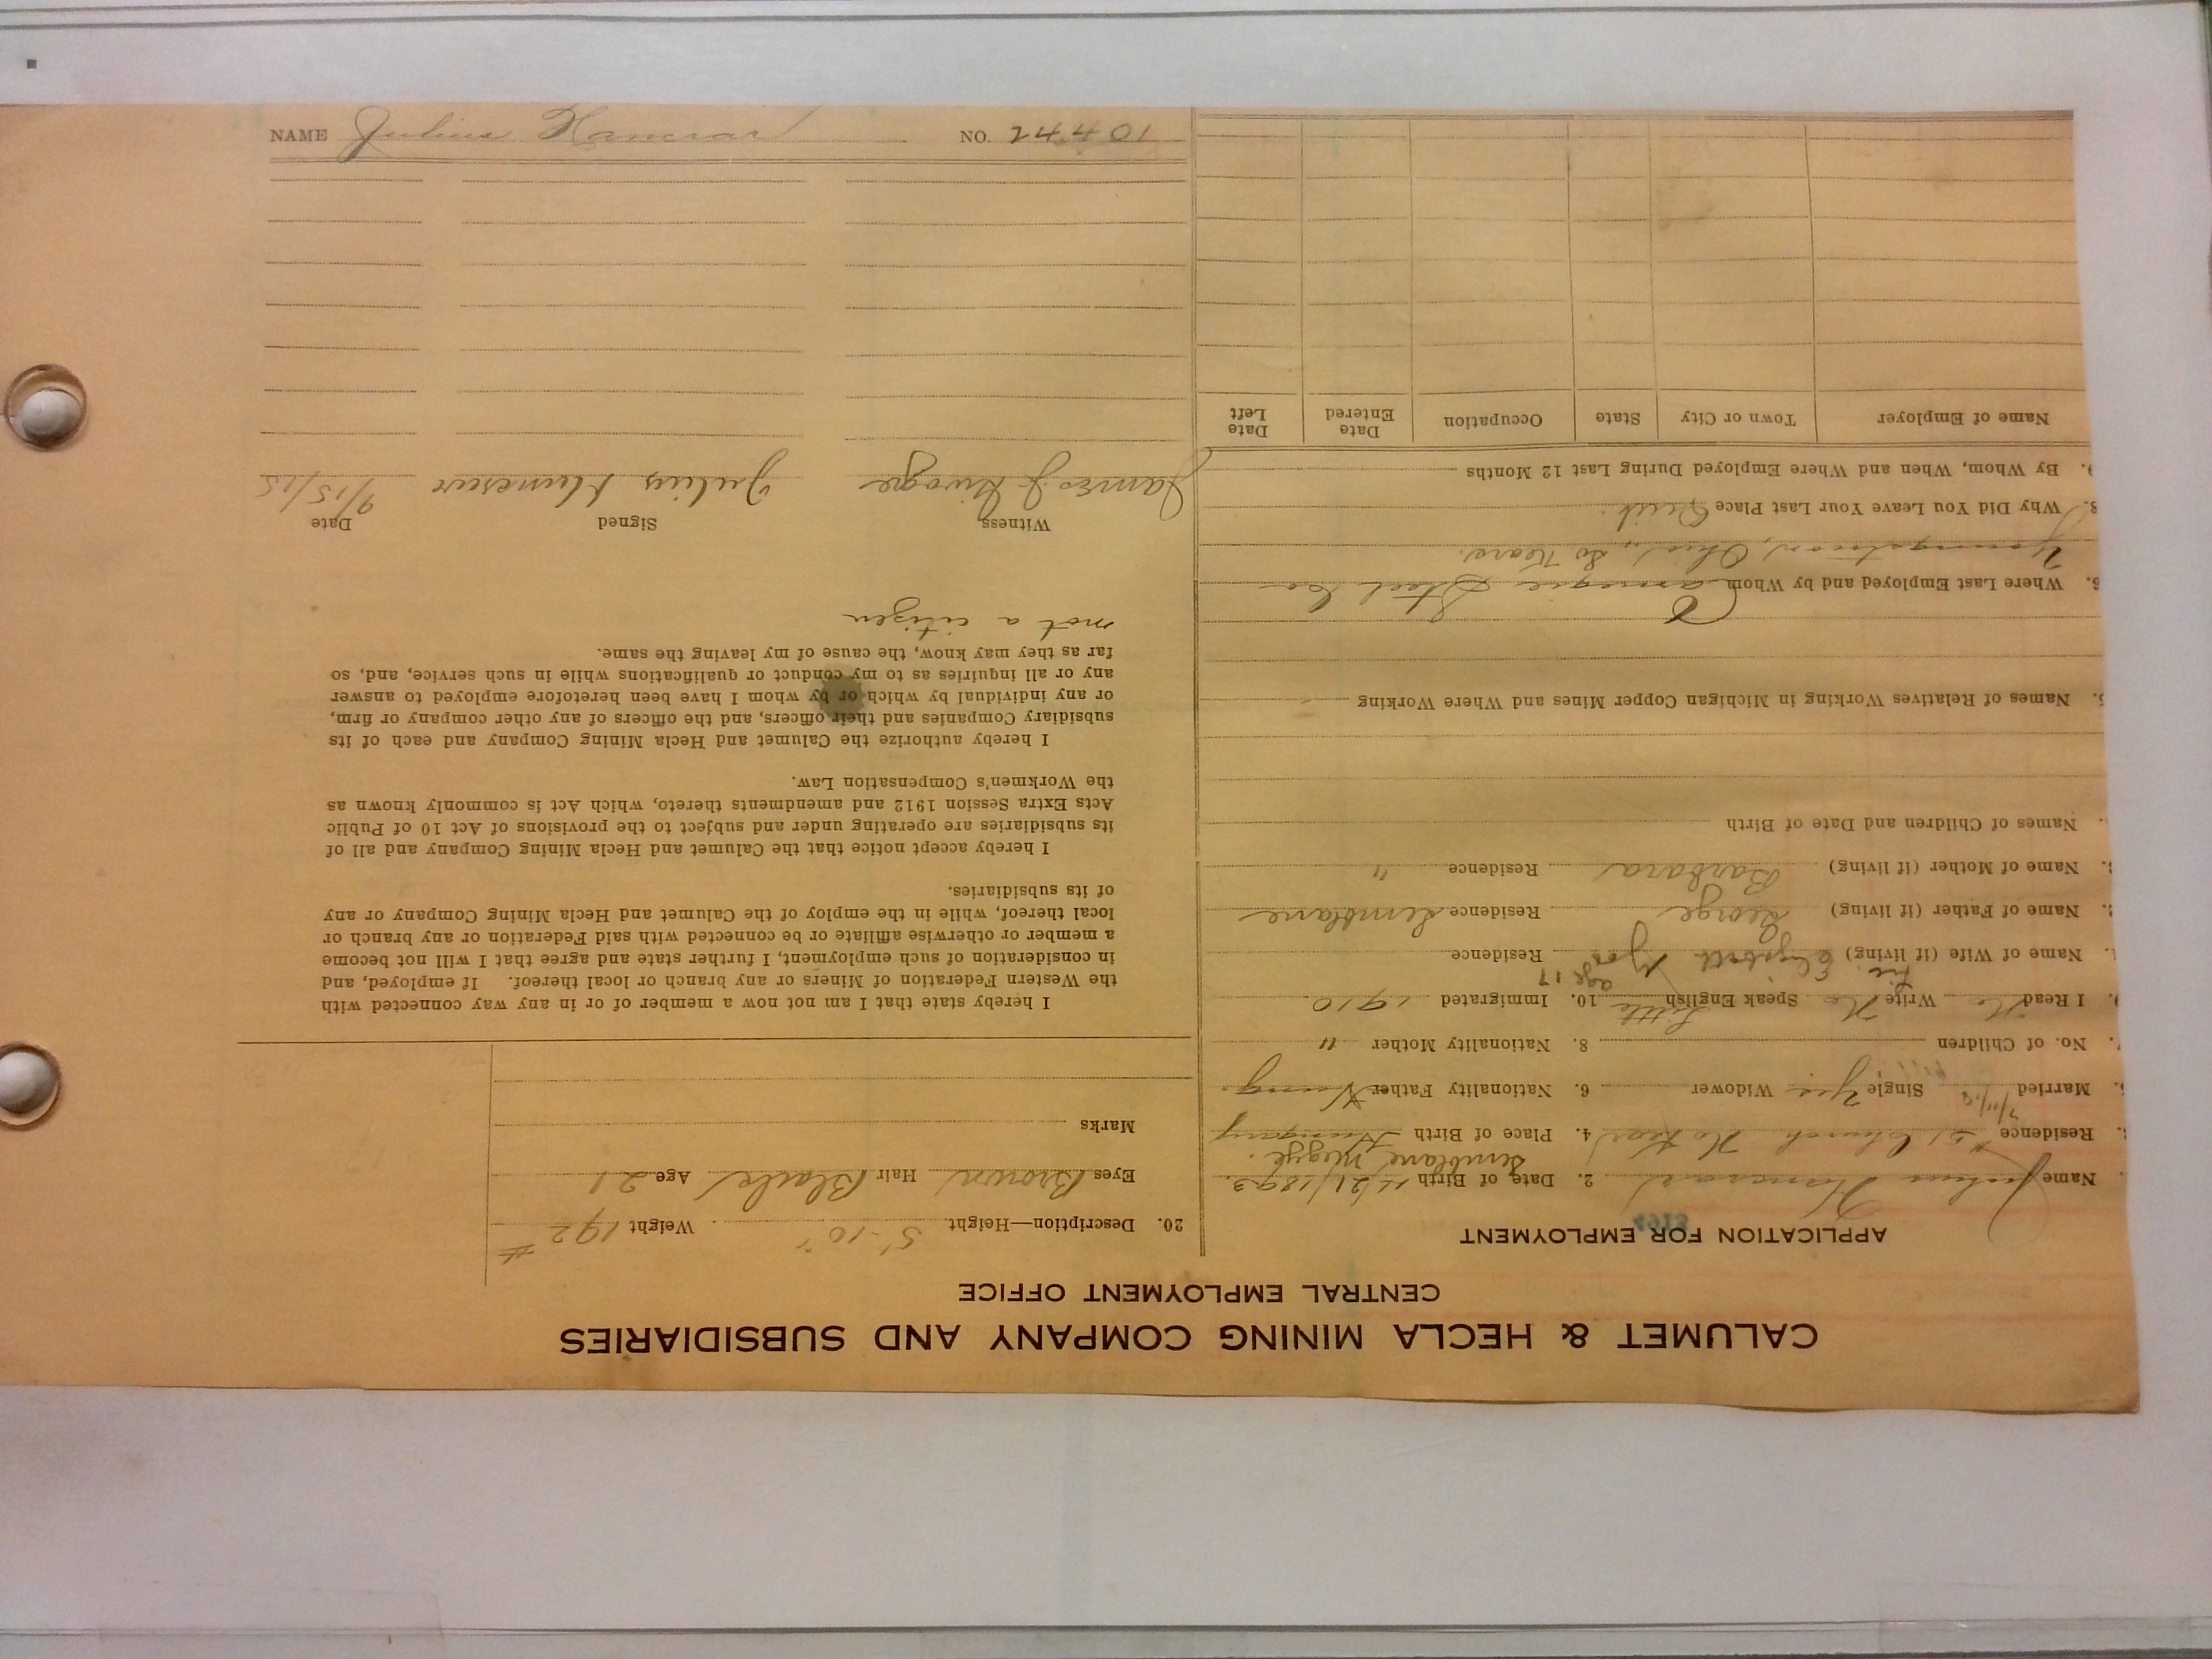 CALUMET & HECLA MINING COMPANY AND SUBSIDIARIES
CENTRAL EMPLOYMENT OFFICE
APPLICATION FOR EMPLOYMENT
Name Julius 2. Date of Birth 11/21/1893
Residence Church 4. Place of Birth Hungary
Married Single Yes Widower 6. Nationality Father Hung.
No. of Children 8. Nationality Mother "
I Read No Write No Speak English Little 10. Immigrated 1910
age 17
Name of Wife (if living) Elizabeth Residence
Name of Father (if living) George Residence
Name of Mother (if living) Barbara Residence "
Names of Children and Date of Birth
Names of Relatives Working in Michigan Copper Mines and Where Working
Where Last Employed and by Whom Carnegie Steel Co
Youngstown, Ohio,
Why Did You Leave Your Last Place Quit.
9. By Whom, When and Where Employed During Last 12 Months
Name of Employer Town or City State Occupation Date Entered Date Left
20. Description—Height 5'-10" Weight 192 #
Eyes Brown Hair Black Age 21
Marks
I hereby state that I am not now a member of or in any way connected with
the Western Federation of Miners or any branch or local thereof. If employed, and
in consideration of such employment, I further state and agree that I will not become
a member or otherwise affiliate or be connected with said Federation or any branch or
local thereof, while in the employ of the Calumet and Hecla Mining Company or any
of its subsidiaries.
I hereby accept notice that the Calumet and Hecla Mining Company and all of
its subsidiaries are operating under and subject to the provisions of Act 10 of Public
Acts Extra Session 1912 and amendments thereto, which Act is commonly known as
the Workmen's Compensation Law.
I hereby authorize the Calumet and Hecla Mining Company and each of its
subsidiary Companies and their officers, and the officers of any other company or firm,
or any individual by which or by whom I have been heretofore employed to answer
any or all inquiries as to my conduct or qualifications while in such service, and, so
far as they may know, the cause of my leaving the same.
not a citizen
Witness Signed Date
James J. Julius 9/15/15
NAME Julius NO. 24401